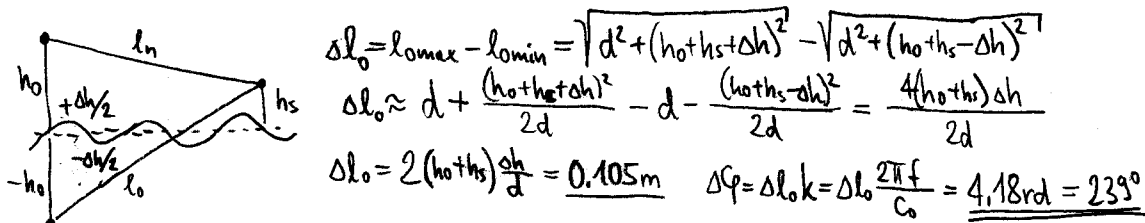 l_n
h_0
h_s
+Δh/2
-Δh/2
-h_0
l_0
Δl_0 = l_0max - l_0min = √(d² + (h_0+h_s+Δh)²) - √(d² + (h_0+h_s-Δh)²)
Δl_0 ≈ d + (h_0+h_s+Δh)²/2d - d - (h_0+h_s-Δh)²/2d = 4(h_0+h_s)Δh/2d
Δl_0 = 2(h_0+h_s) Δh/d = 0.105m Δφ = Δl_0 k = Δl_0 2πf/c_0 = 4,18rd = 239°